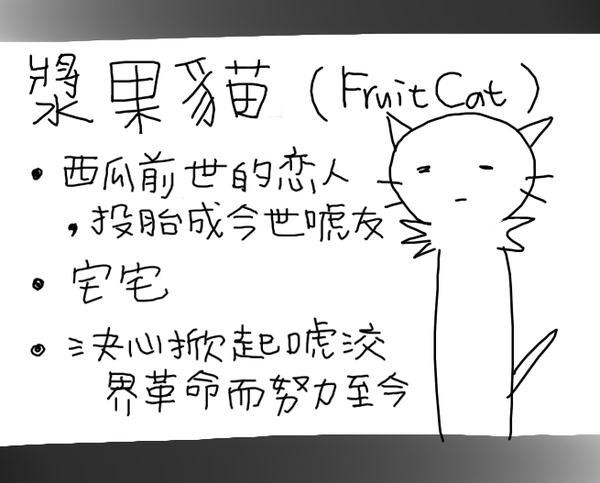 漿果貓(FruitCat)
• 西瓜前世的恋人
,投胎成今世唬友
• 宅宅
• 決心掀起唬洨
界革命而努力至今